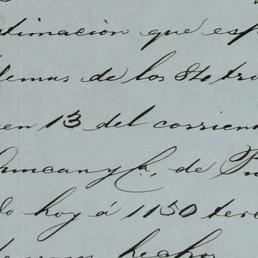 timacion que esp
demas de los
en 13 del corrient
Duncan y Ca, de P
do hoy á 1150 ter
hechos